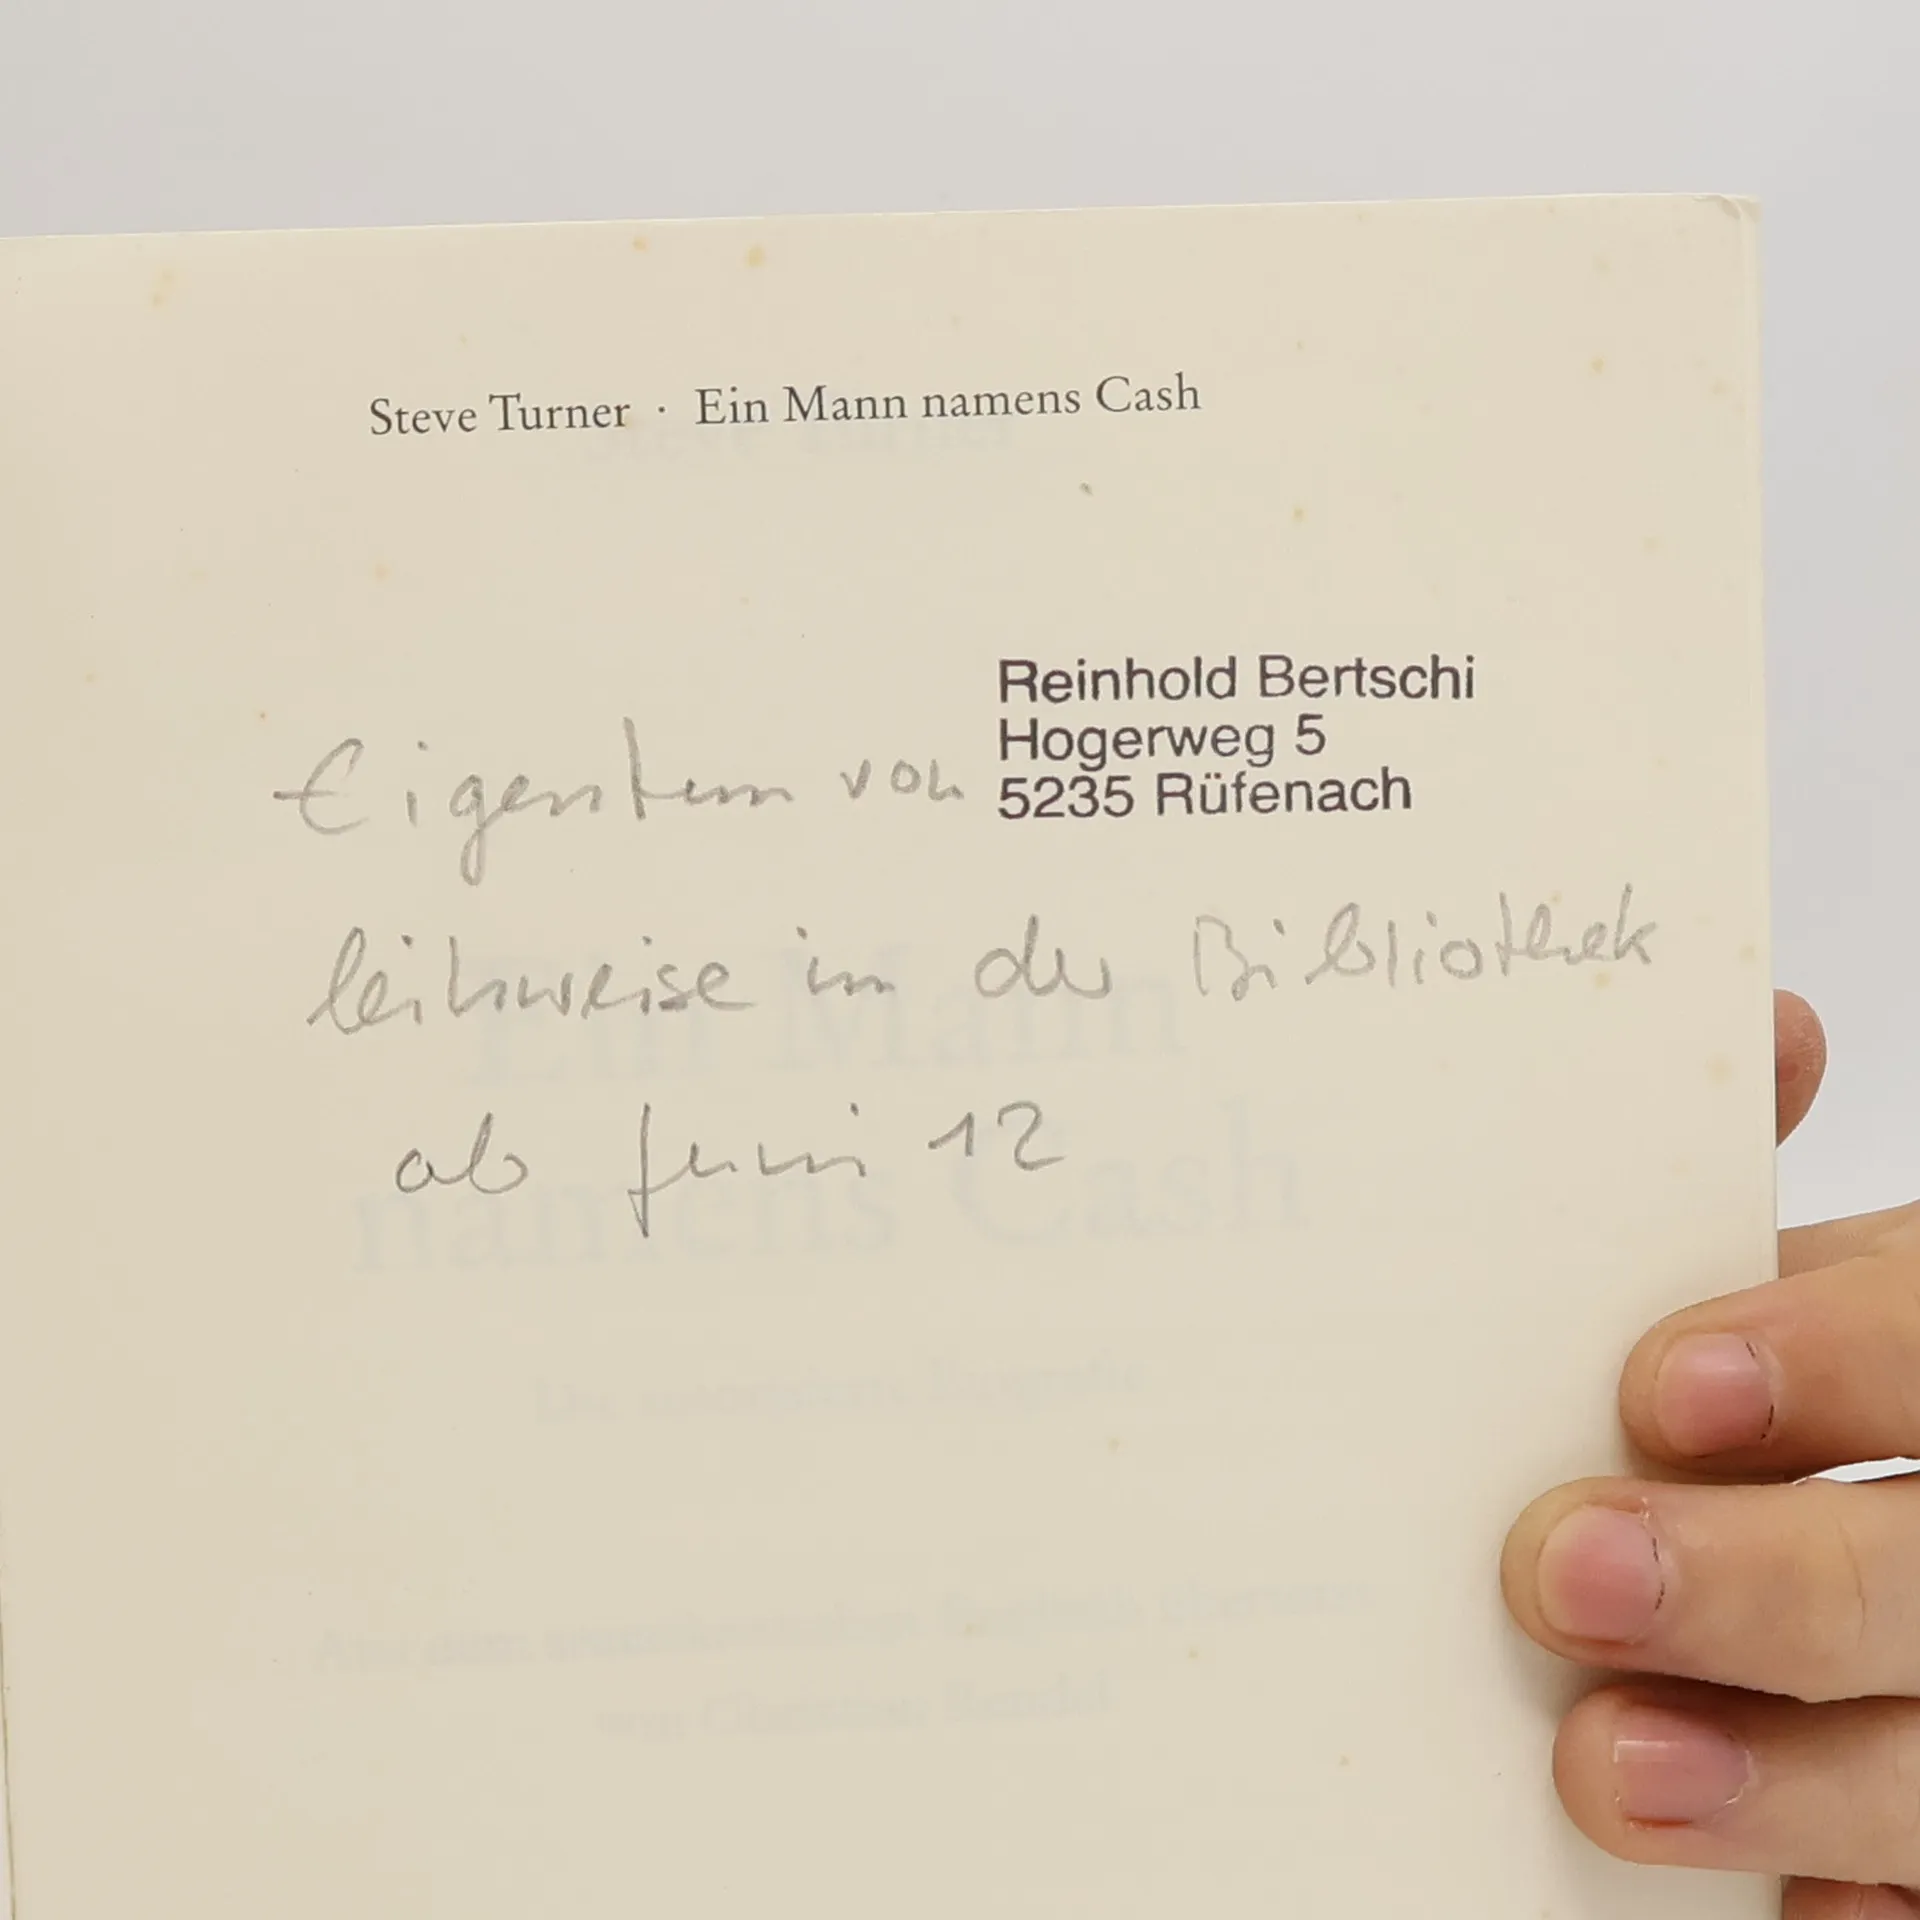 Steve Turner · Ein Mann namens Cash
Reinhold Bertschi
Hogerweg 5
5235 Rüfenach
Eigentum von
leihweise in der Bibliothek
ab Juni 12
Ein Mann
namens Cash